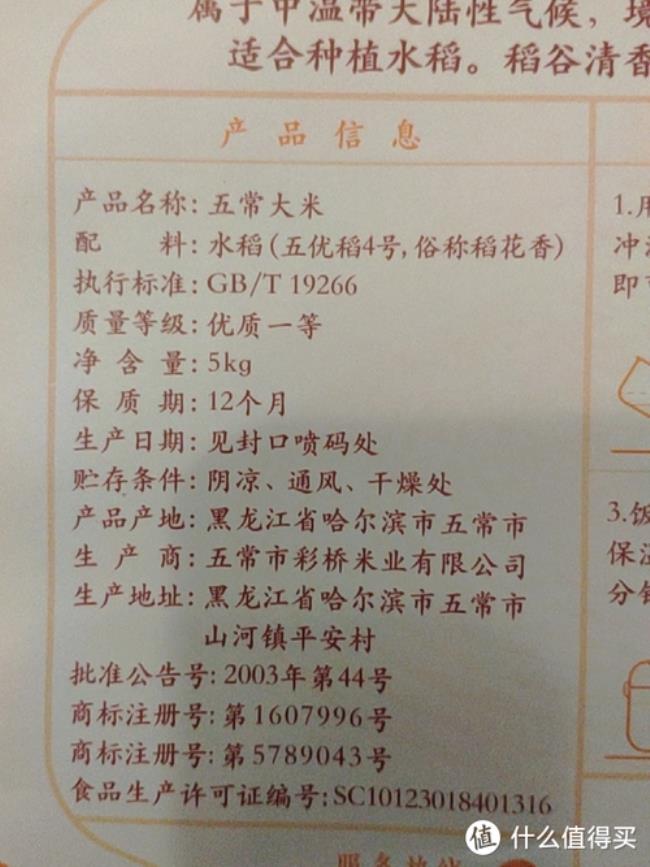 属于中温带大陆性气候，境
适合种植水稻。稻谷清香
产品信息
产品名称：五常大米
配 料：水稻（五优稻4号，俗称稻花香）
执行标准：GB/T 19266
质量等级：优质一等
净含量：5kg
保质期：12个月
生产日期：见封口喷码处
贮存条件：阴凉、通风、干燥处
产品产地：黑龙江省哈尔滨市五常市
生产商：五常市彩桥米业有限公司
生产地址：黑龙江省哈尔滨市五常市
山河镇平安村
批准公告号：2003年第44号
商标注册号：第1607996号
商标注册号：第5789043号
食品生产许可证编号：SC10123018401316
1.用
冲洗
即可
3.饭
保温
分钟
服务热线
值 什么值得买